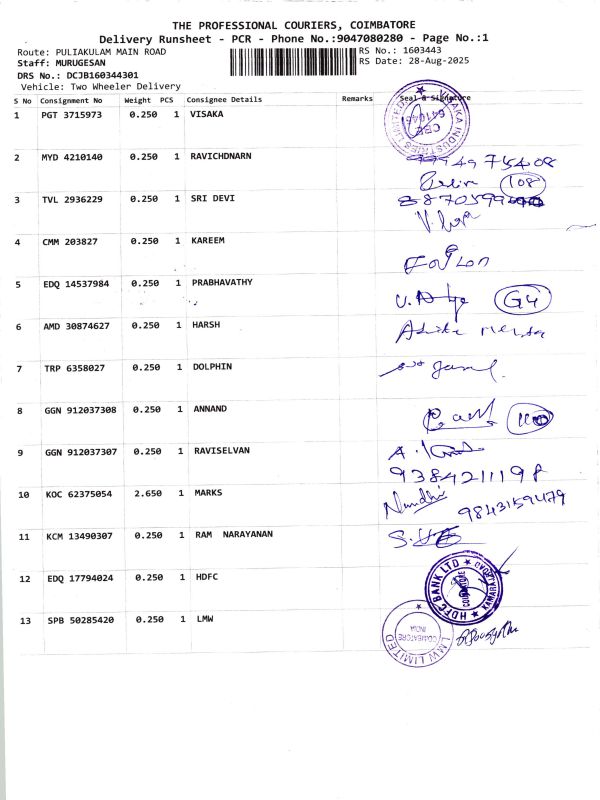 THE PROFESSIONAL COURIERS, COIMBATORE
Delivery Runsheet - PCR - Phone No.:9047080280 - Page No.:1
Route: PULIAKULAM MAIN ROAD
RS No.: 1603443
Staff: MURUGESAN
RS Date: 28-Aug-2025
DRS No.: DCJB160344301
Vehicle: Two Wheeler Delivery
S No Consignment No Weight PCS Consignee Details Remarks Seal & Signature
1 PGT 3715973 0.250 1 VISAKA
VISAKA INDUSTRIES LIMITED CBE 641045
2 MYD 4210140 0.250 1 RAVICHDNARN
108
3 TVL 2936229 0.250 1 SRI DEVI
4 CMM 203827 0.250 1 KAREEM
5 EDQ 14537984 0.250 1 PRABHAVATHY
G4
6 AMD 30874627 0.250 1 HARSH
7 TRP 6358027 0.250 1 DOLPHIN
8 GGN 912037308 0.250 1 ANNAND
9 GGN 912037307 0.250 1 RAVISELVAN
9384211198
10 KOC 62375054 2.650 1 MARKS
Nandhi 9843159479
11 KCM 13490307 0.250 1 RAM NARAYANAN
12 EDQ 17794024 0.250 1 HDFC
HDFC BANK LTD COIMBATORE
13 SPB 50285420 0.250 1 LMW
LMW LIMITED COIMBATORE INDIA